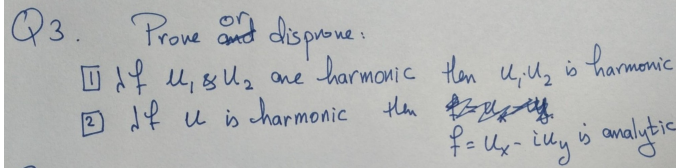 Q3. Prove or disprove:
1 If u₁ & u₂ are harmonic then u₁.u₂ is harmonic
2 If u is harmonic then
f = uₓ - iu_y is analytic